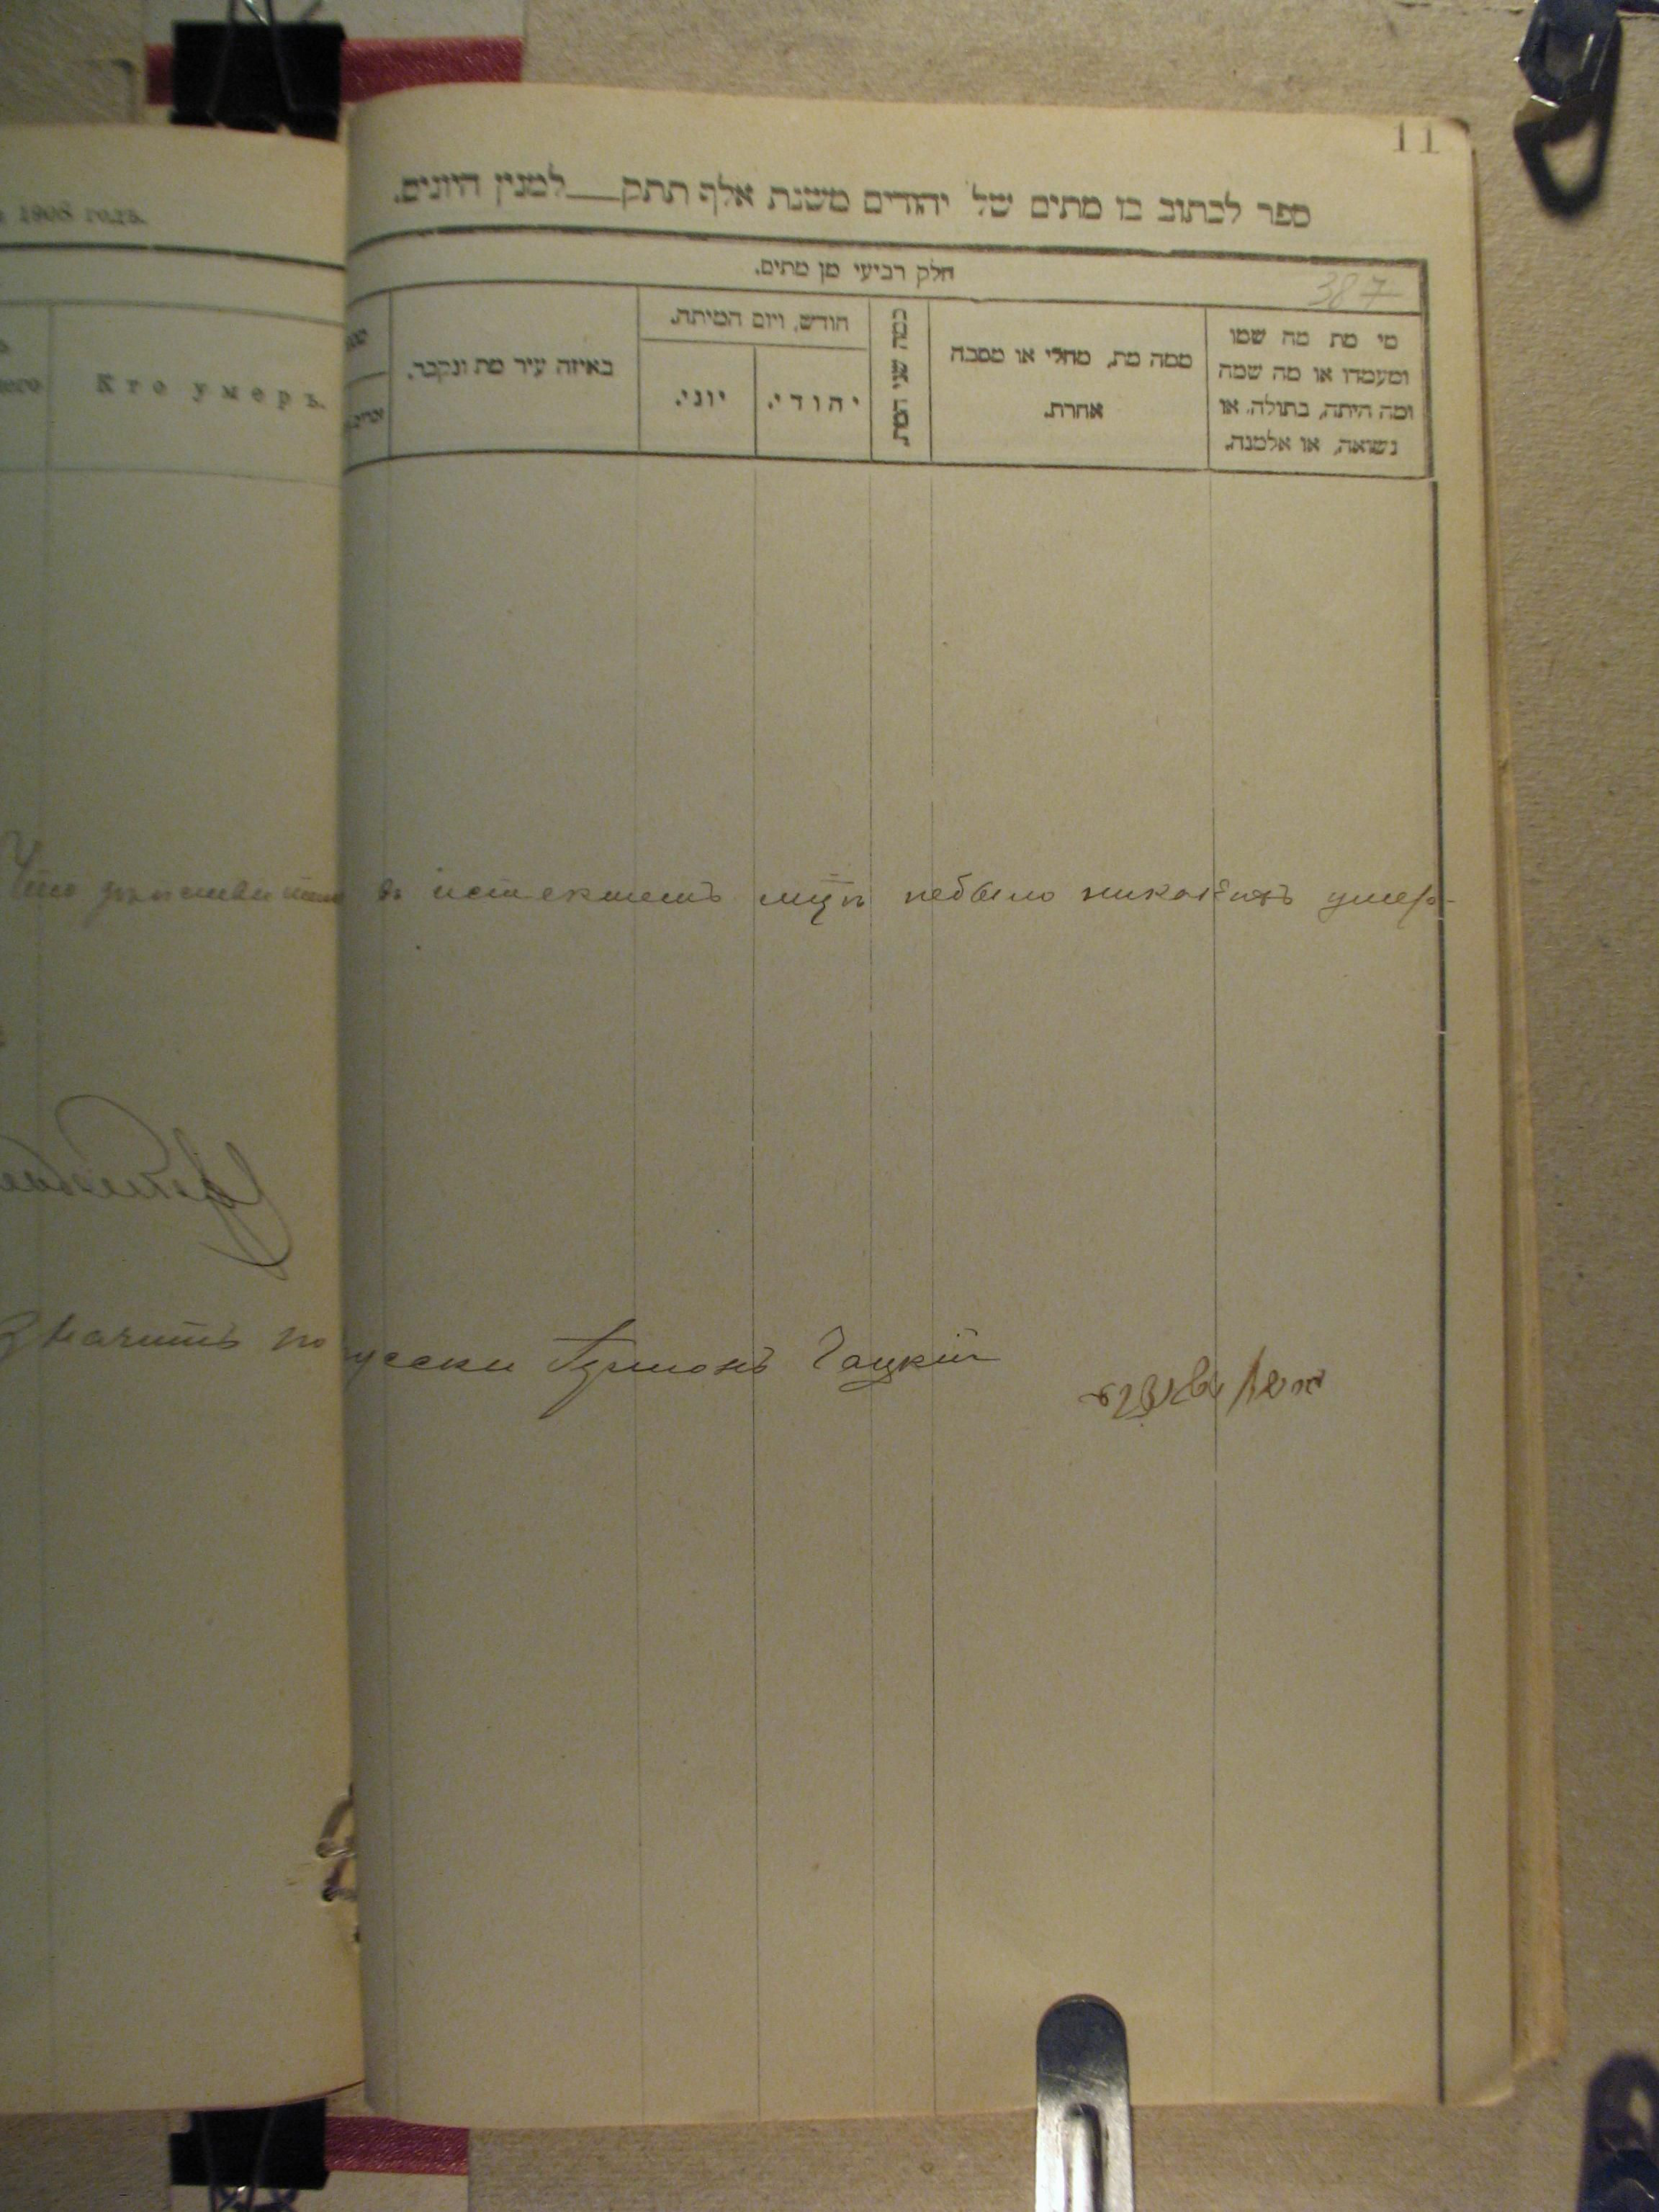 11
1908 года.
ספר לכתוב בו מתים של יהודים משנת אלף תתק___למנין היונים.
387
חלק רביעי מן מתים.
Кто умеръ.
מי מת מה שמו
ומעמדו או מה שמה
ומה היתה, בתולה, או
נשואה, או אלמנה.
ממה מת, מחלי או מסבה
אחרת.
כמה שני המת.
חודש, ויום המיתה.
יהודי.
יוני.
באיזה עיר מת ונקבר.
Что въ истекшемъ мцѣ небыло никакихъ умер-
Значитъ по русски Гацкій